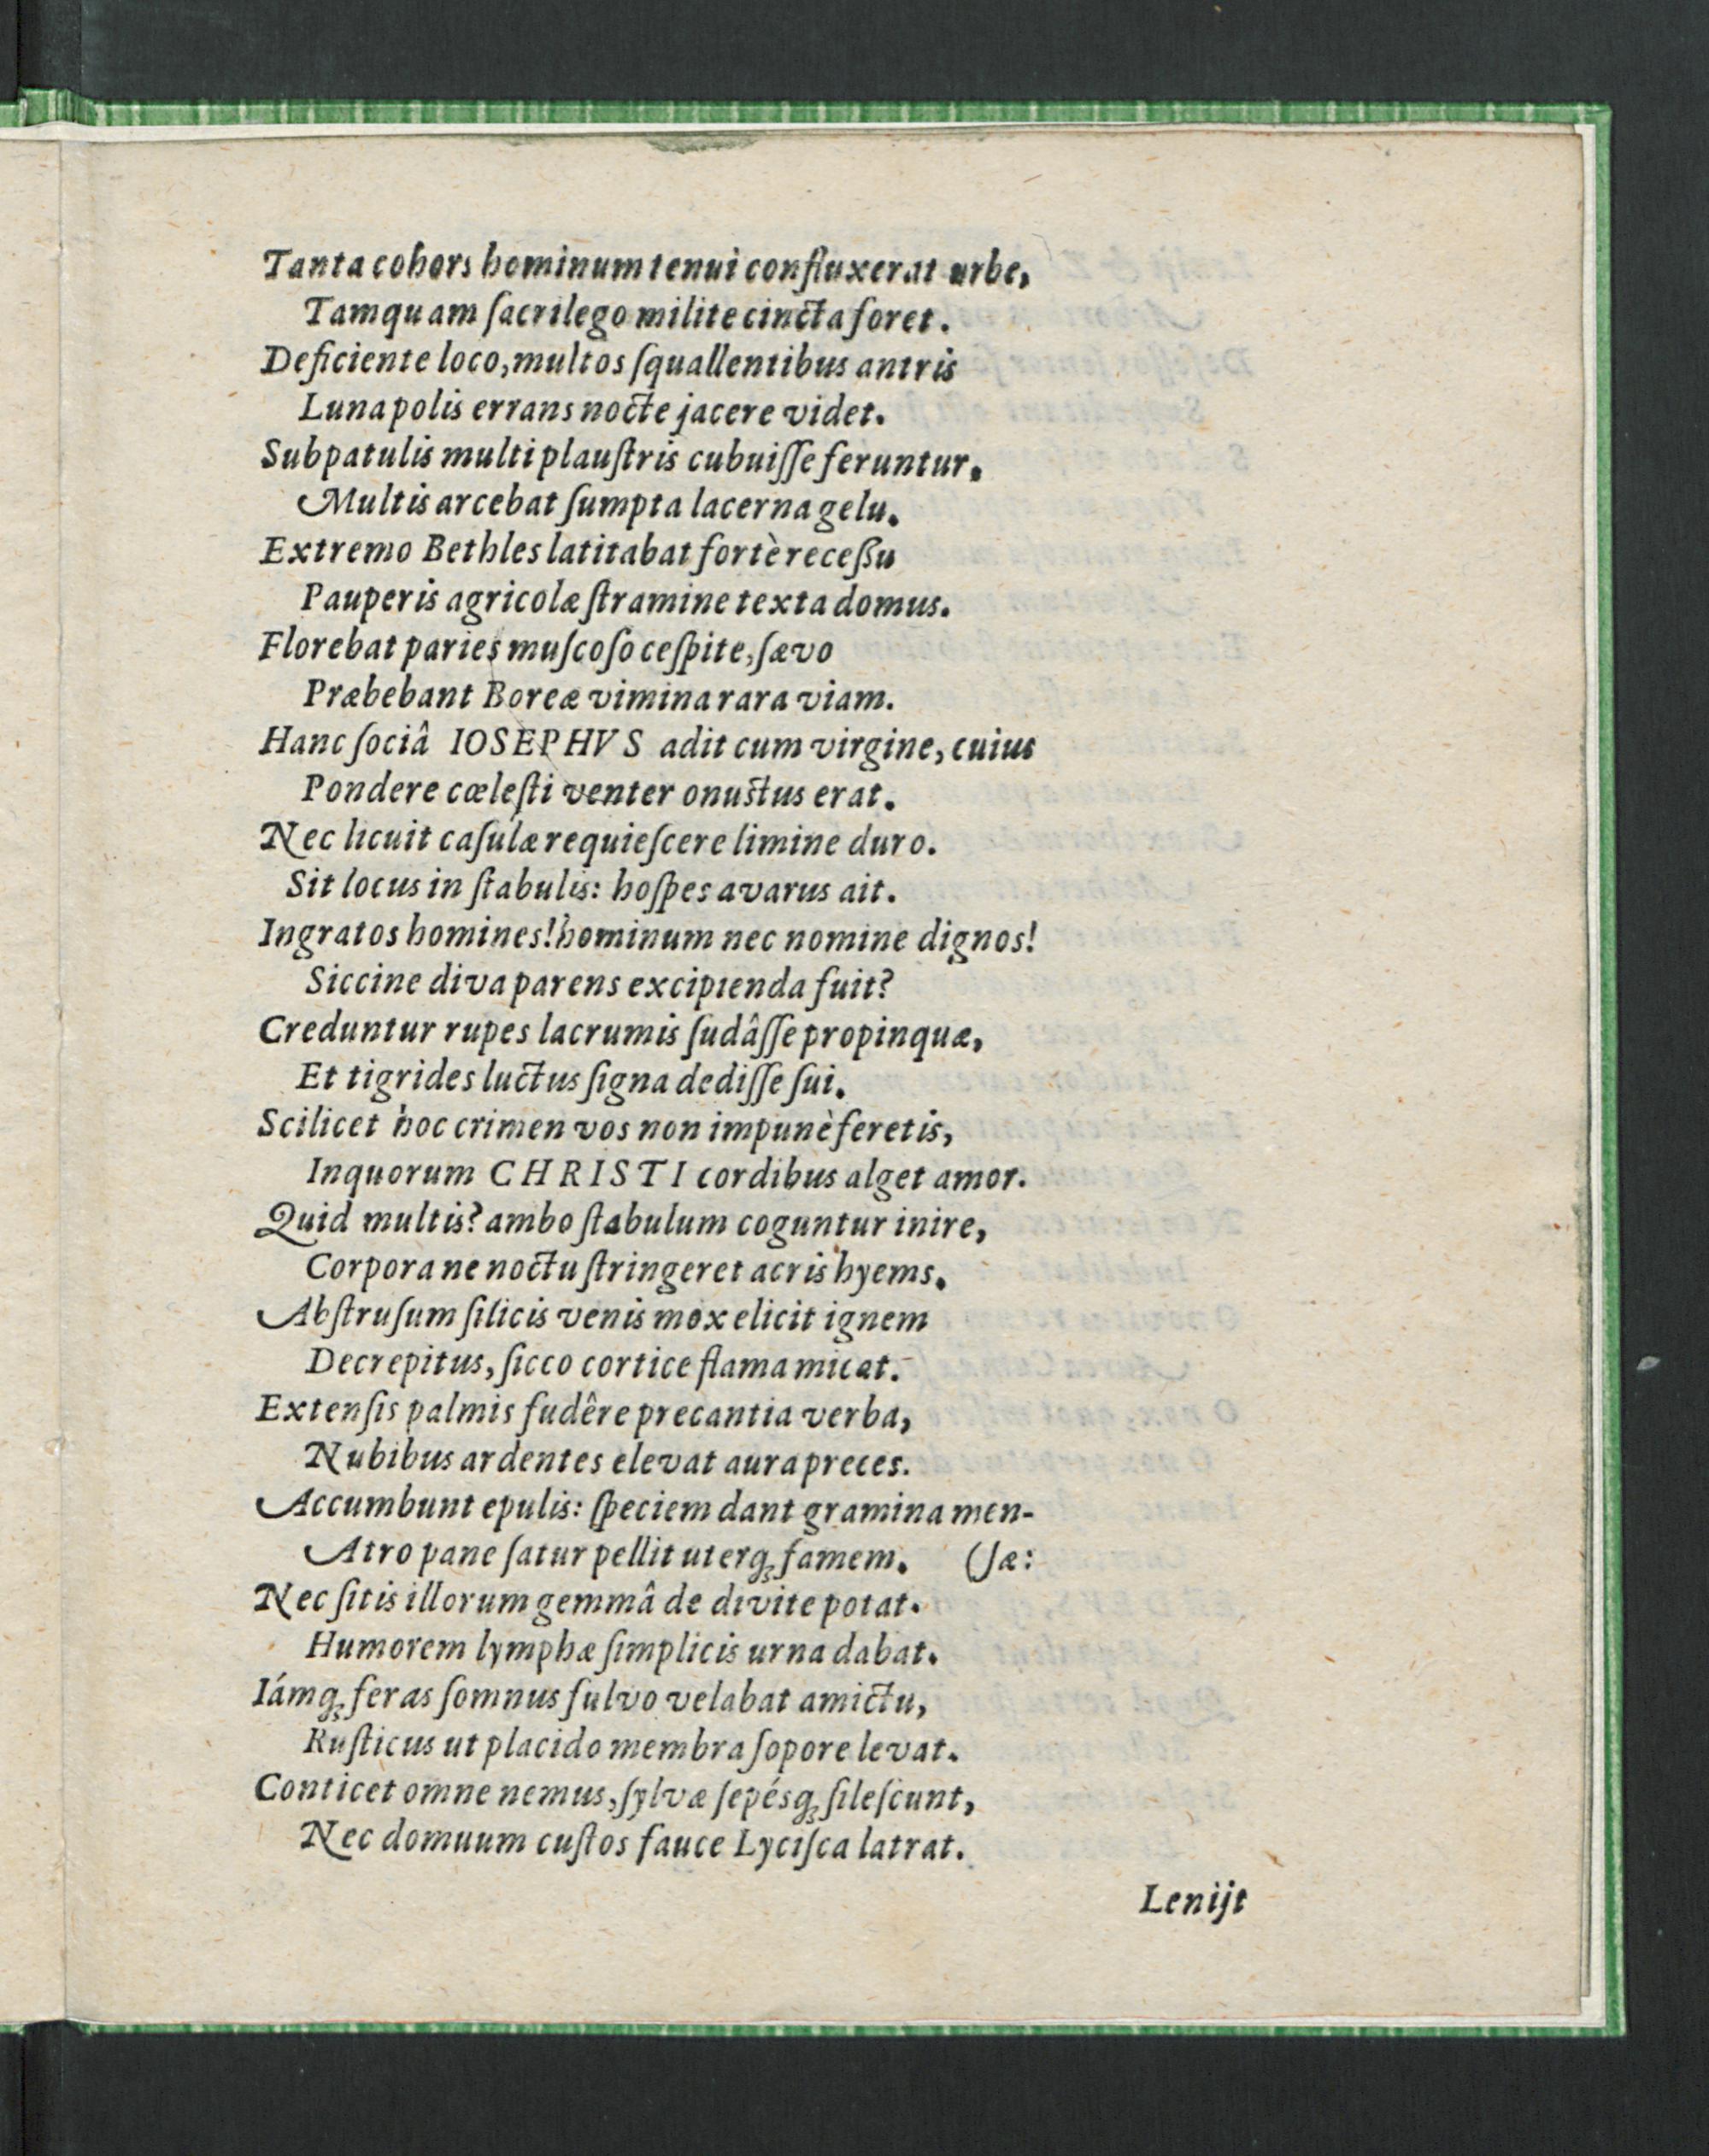 Tanta cohors hominum tenui confluxerat urbe,
Tamquam ſacrilego milite cincta foret.
Deficiente loco, multos ſquallentibus antris
Luna polis errans nocte jacere videt.
Sub patulis multi plauſtris cubuiſſe feruntur,
Multis arcebat ſumpta lacerna gelu.
Extremo Bethles latitabat fortè receßu
Pauperis agricolæ ſtramine texta domus.
Florebat paries muſcoſo ceſpite, ſævo
Præbebant Boreæ vimina rara viam.
Hanc ſociâ IOSEPHVS adit cum virgine, cuius
Pondere cœleſti venter onustus erat.
Nec licuit caſulæ requieſcere limine duro.
Sit locus in ſtabulis: hoſpes avarus ait.
Ingratos homines! hominum nec nomine dignos!
Siccine diva parens excipienda fuit?
Creduntur rupes lacrumis ſudâſſe propinquæ,
Et tigrides luctus ſigna dediſſe ſui.
Scilicet hoc crimen vos non impunè feretis,
In quorum CHRISTI cordibus alget amor.
Quid multis? ambo ſtabulum coguntur inire,
Corpora ne noctu ſtringeret acris hyems.
Abſtruſum ſilicis venis mox elicit ignem
Decrepitus, ſicco cortice flama micat.
Extenſis palmis fudêre precantia verba,
Nubibus ardentes elevat aura preces.
Accumbunt epulis: ſpeciem dant gramina men-
Atro pane ſatur pellit uterq; famem. (ſæ:
Nec ſitis illorum gemmâ de divite potat.
Humorem lymphæ ſimplicis urna dabat.
Iámq; feras ſomnus fulvo velabat amictu,
Ruſticus ut placido membra ſopore levat.
Conticet omne nemus, ſylvæ ſepésq; ſileſcunt,
Nec domuum cuſtos fauce Lyciſca latrat.
Lenijt